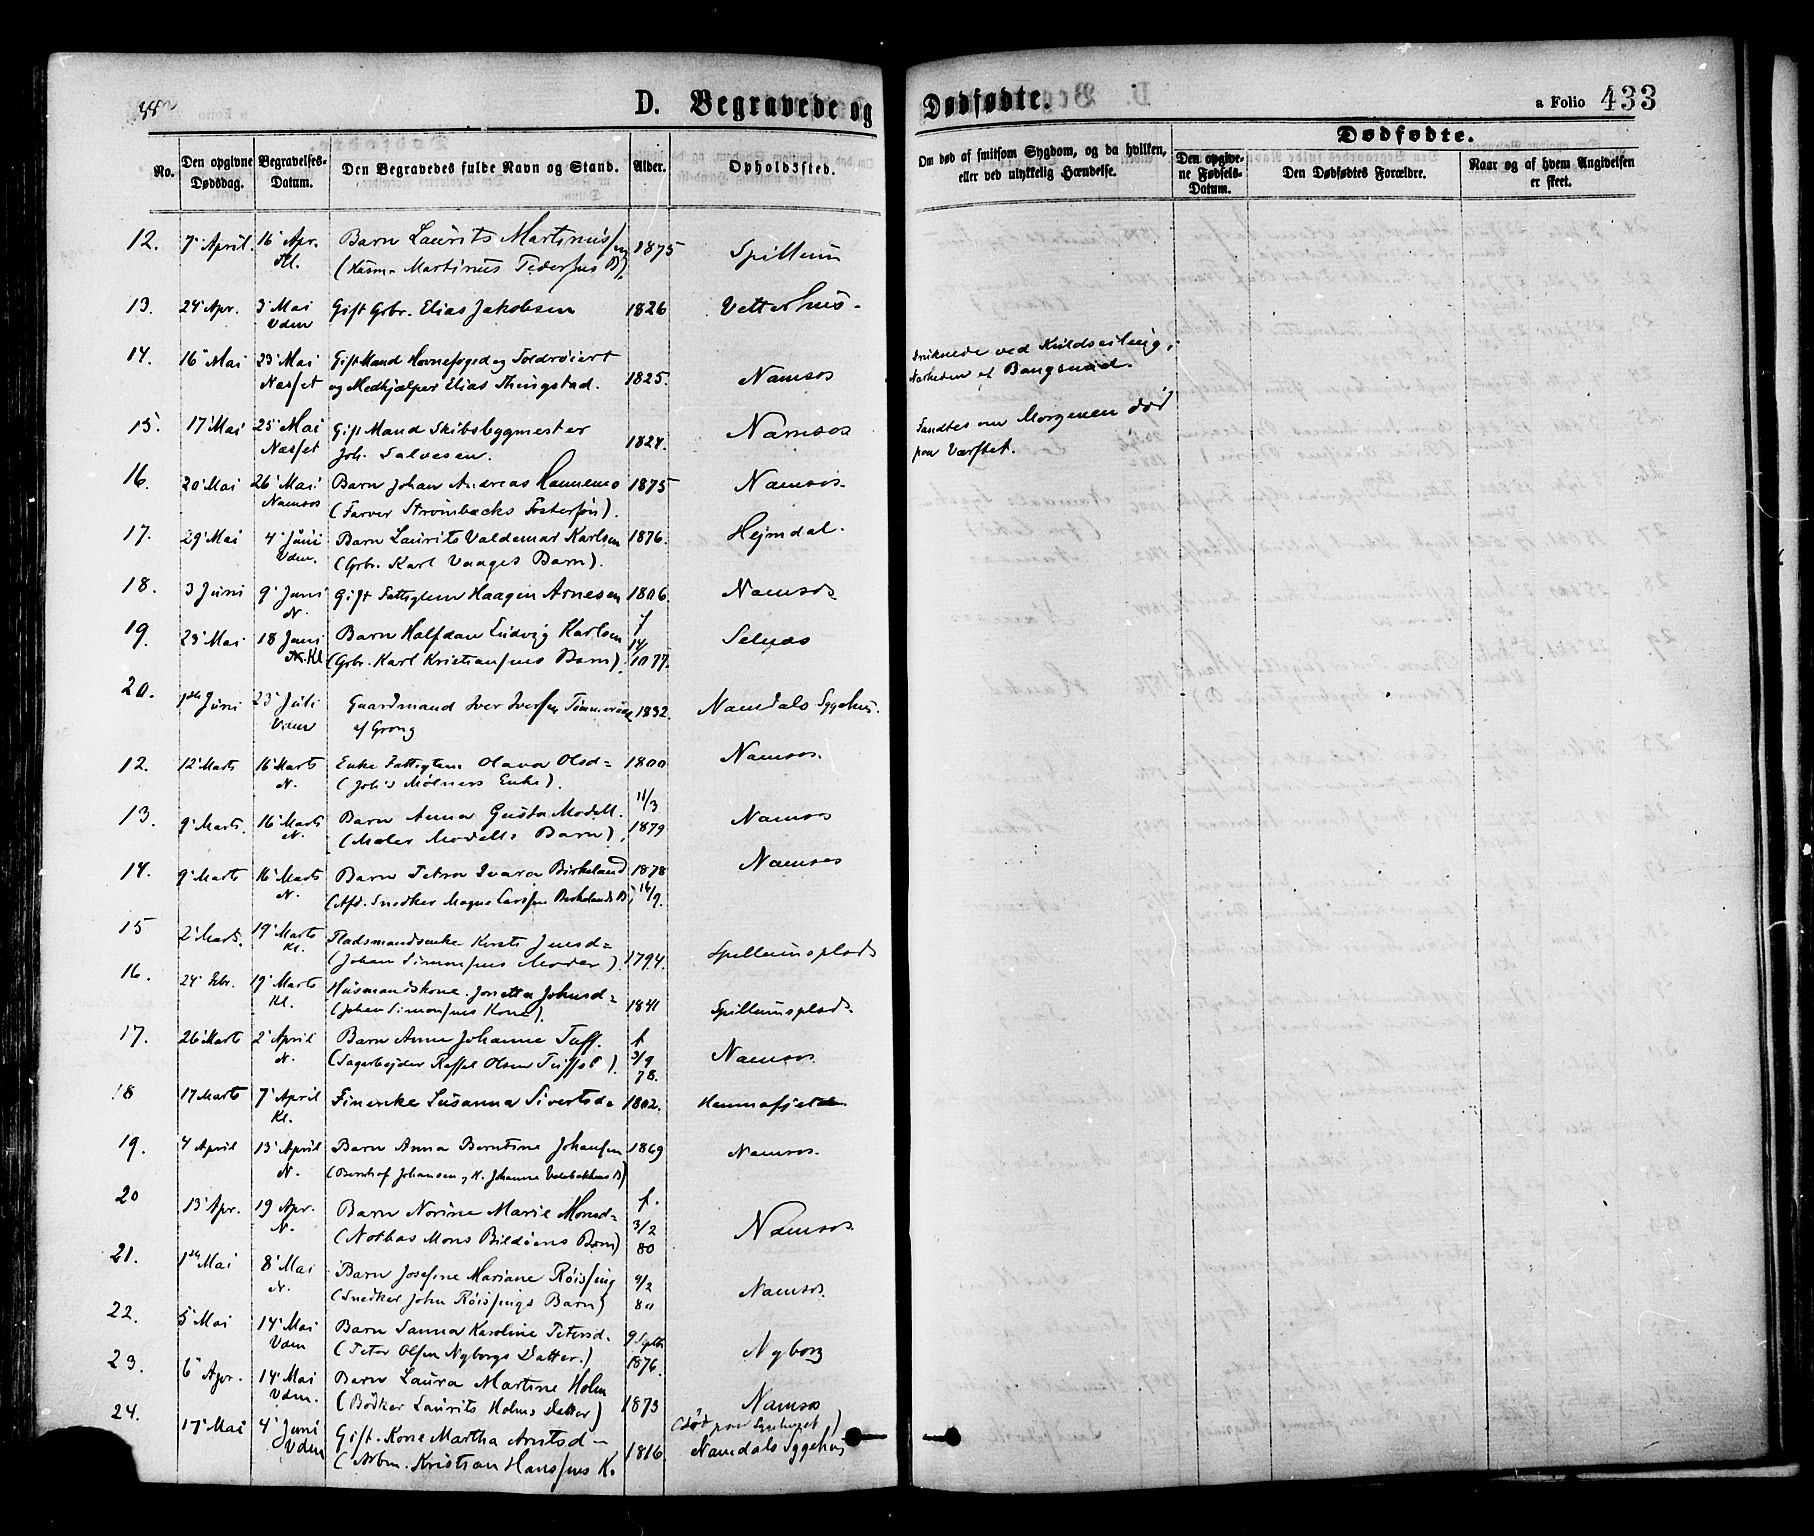 D. Begravede og Dødfødte.
a Folio 433
No.
Den opgivne Dødsdag.
Begravelses-Datum.
Den Begravedes fulde Navn og Stand.
Alder.
Opholdssted.
Om død af smitsom Sygdom, og da hvilken, eller ved ulykkelig Hændelse.
Dødfødte.
Den opgivne Fødsels-Datum.
Den Dødfødtes Forældre.
Naar og af hvem Angivelsen er skeet.
12. 7 April. 16 Apr. Kl. Barn Laurits Martinussen 1875 Spillum
(Husm. Martinus Pedersens B).
13. 24 Apr. 3 Mai Vdm Gift Grbr. Elias Jakobsen 1826 Vetterhus
14. 16 Mai 23 Mai Gift Mand Havnefoged og Toldroiert
Næsset og Medhjælper Elias Thingstad. 1825. Namsos
druknede ved Kuldseiling,
Nærheden af Bangsund.
15. 17 Mai 25 Mai Gift Mand Skibsbygmester
Næsset Joh. Salvesen. 1824. Namsos
Fandtes om Morgenen død
paa Værftet.
16. 20 Mai 26 Mai Barn Johan Andreas Hannemo 1875 Namsos.
Namsos (Farver Strømbæcks Fostersøn).
17. 29 Mai 4 Juni Barn Laurits Valdemar Karlsen 1876. Hejmdal.
Vdm. (Grbr. Karl Vaages Barn).
18. 3 Juni 9 Juni Gift Fattiglem Haagen Arnesen 1806. Namsos
N.
19. 23 Mai 18 Juni Barn Halfdan Ludvig Karlsen f Selnæs
Kl (Grbr. Karl Kristiansens Barn).
1877.
20. 1ste Juni 23 Juli Gaardmand Iver Iversen 1832. Namdals Sygehus.
Vdm af Grong
12. 12 Marts 16 Marts Enke Fattiglem Olava Olsd= 1800 Namsos.
N. (Joh's Mølners Enke).
13. 9 Marts. 16 Marts Barn Anna Gusta Modell. 11/3 1879 Namsos
N. (Maler Modells Barn).
14. 9 Marts 16 Marts Barn Petra Ivara Birkeland 1878 Namsos
N. (Afd. Snedker Magne Larssen Birkelands B) 16/9.
15 2 Marts. 19 Marts Pladsmandsenke Kirsti Jensd= 1794. Spillumsplads
Kl. (Johan Simonsens Moder).
16. 24 Febr. 19 Marts Husmandskone Jonetta Johnsd= 1841 Spillumsplads.
Kl. (Johan Simonsens Kone).
17. 26 Marts 2 April Barn Anne Johanne Tuff. f. 3/9 78. Namsos
N. (Sagarbejder Raffel Olsen Tuffs B).
18 17 Marts 7 April Susanna Sivertsd= 1802.
Kl.
19. 4 April 13 April Barn Anna Berntine Johansen 1869 Namsos.
N.
20 13 Apr. 19 Apr. Barn Norine Marie Monsd= f. 3/2 80 Namsos
N. (Nothas Mons Bildøens Barn)
21. 1ste Mai 8 Mai Barn Josefine Mariane Røissing 9/2 80 Namsos.
N. (Snedker John Røissings Barn)
22. 5 Mai 14 Mai Barn Sanna Karoline Petersd= 9 Septbr 1876. Nyborg
Vdm (Peter Olsen Nyborgs Datter.)
23. 6 Apr. 14 Mai Barn Laura Martine Holm 1873 Namsos
Vdm. (Bødker Laurits Holms Datter) (død paa Sygehuset)
24. 17 Mai 4 Juni Gift Kone Martha Arntsd= 1816. Namdals Sygehus
Vdm (Arbm. Kristian Hanssens K.